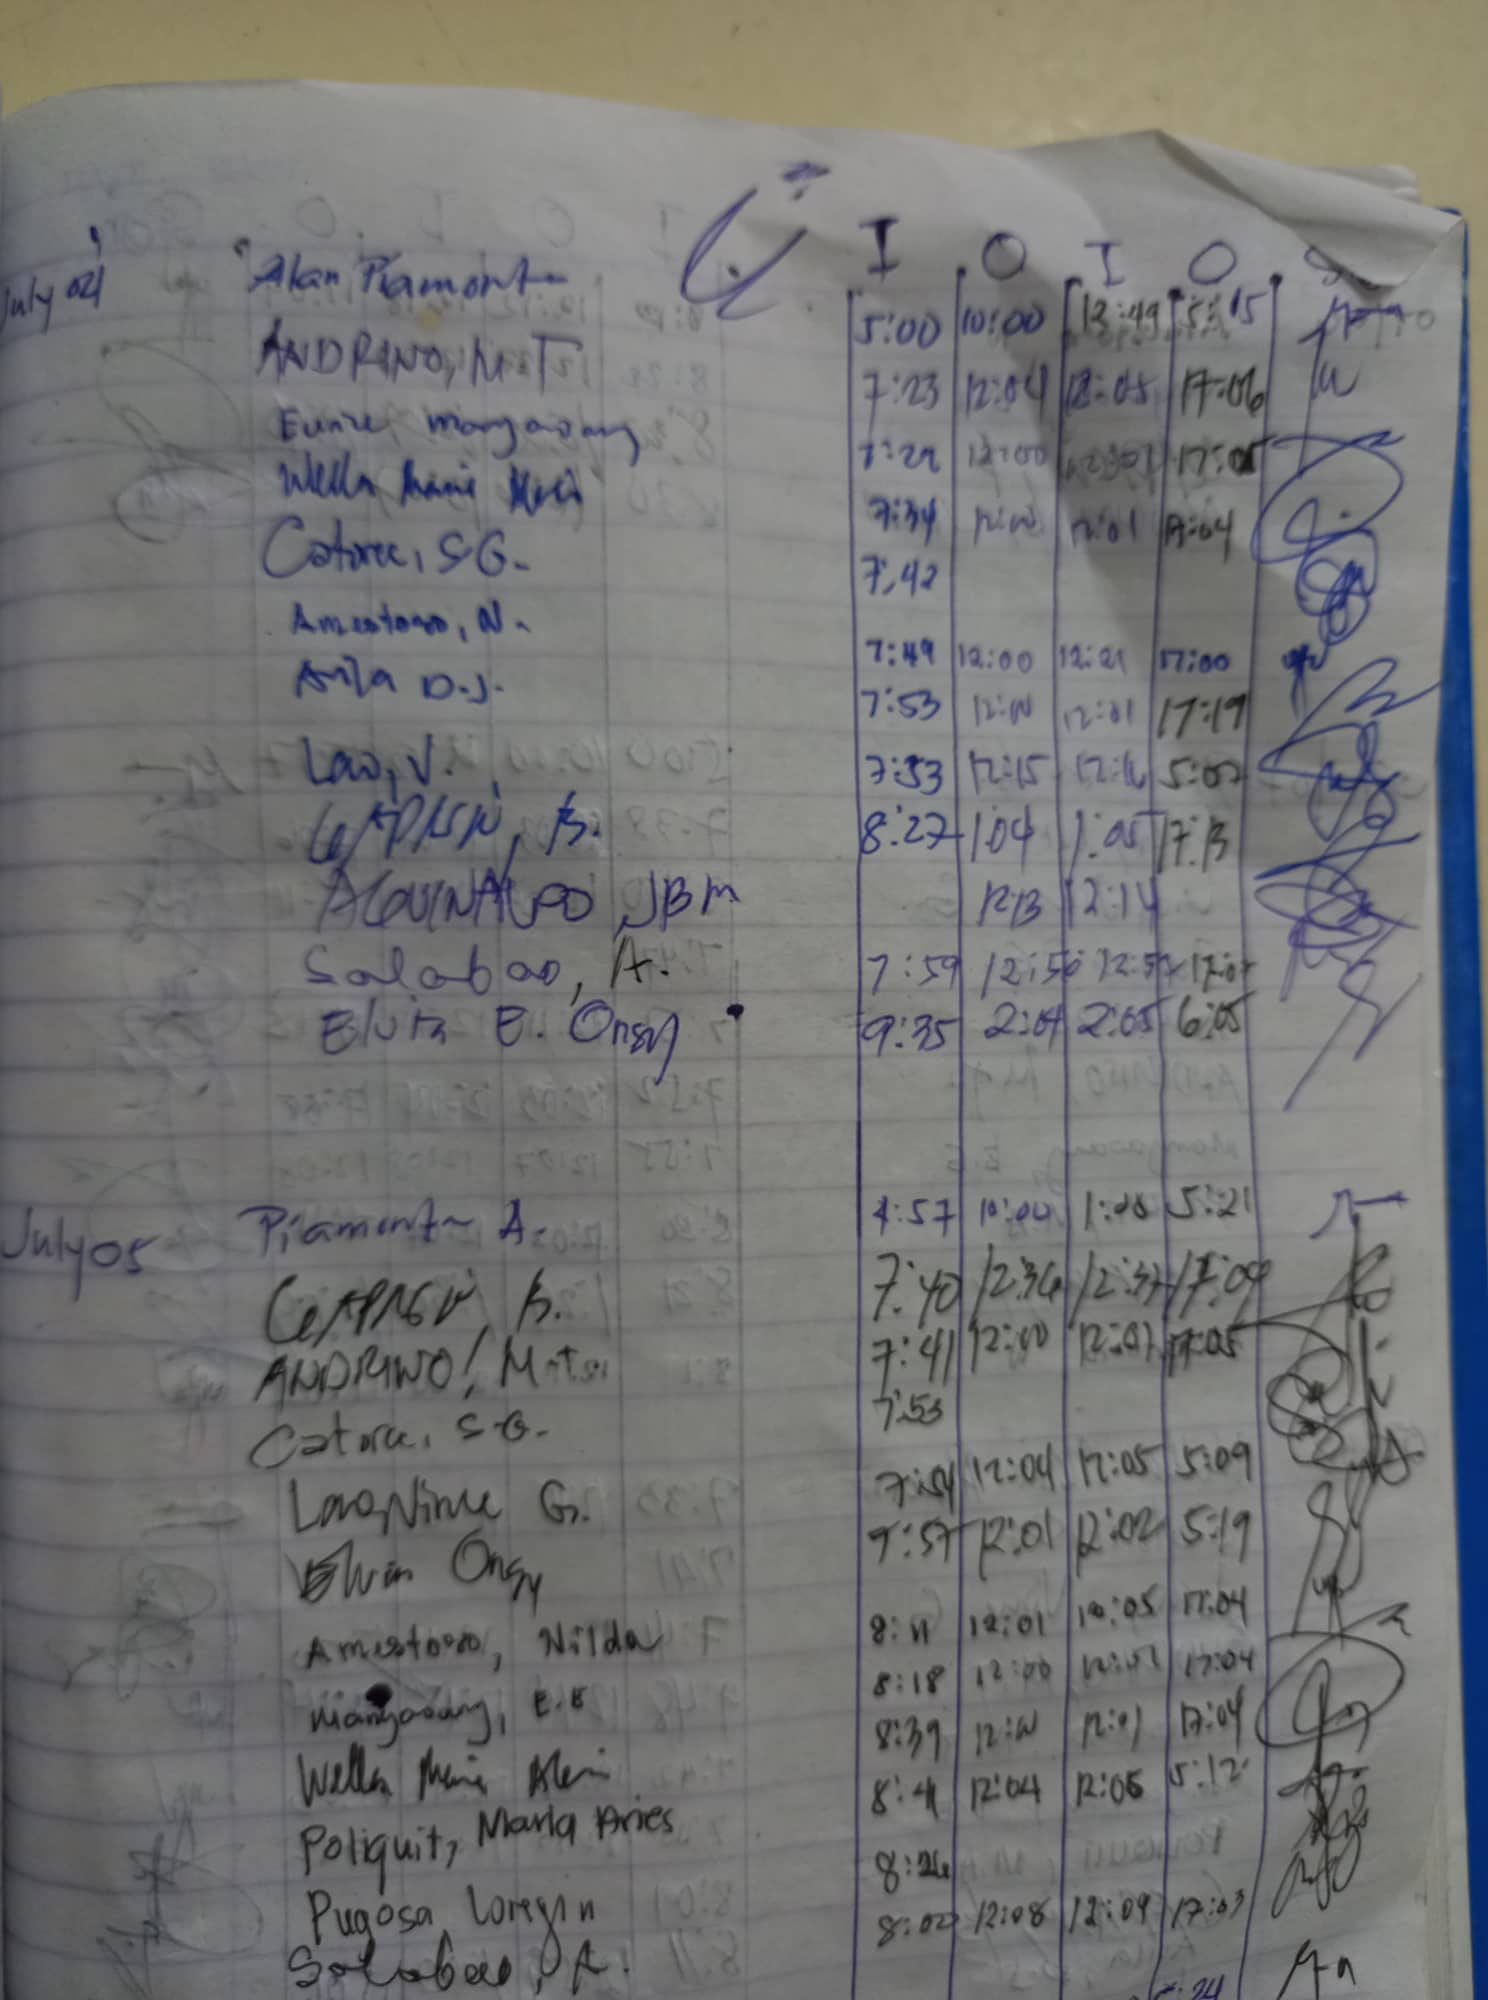 I O I O
July 04 Alan Piamonte 5:00 10:00 13:49 5:15
ANDRINO, M T 7:23 12:04 12:05 17:06
Eunice Mangaoang 7:29 12:00 12:01 17:05
Wella Marie 7:34 12:00 12:01 17:04
Catorce, SG. 7:42
Amestoso, N. 7:49 12:00 12:21 17:00
Avila D.J. 7:53 12:00 12:01 17:19
Lao, V. 7:53 12:15 12:16 5:02
B. 8:27 1:04 1:05 17:13
AGUINALDO JBM 12:13 12:14
Salabao, A. 7:59 12:56 12:57
Elvin E. Ongy 9:35 2:04 2:05 6:05
July 05 Piamonte A. 4:57 10:00 1:00 5:21
B. 7:40 12:36 12:37 17:09
ANDRINO, 7:41 12:00 12:01 17:05
Catorce, S.G. 7:53
Lao, G. 7:54 12:04 12:05 5:09
Elvin Ongy 9:57 12:01 12:02 5:19
Amestoso, Nilda 8:11 12:01 12:05 17:04
Mangaoang, E.E 8:18 12:00 12:01 17:04
Wella Marie 8:39 12:00 12:01 17:04
Poliquit, Marla Aries 8:41 12:04 12:05 5:12
Pugosa, Loregin 8:26
Salabao, A. 8:02 12:08 12:09 17:03